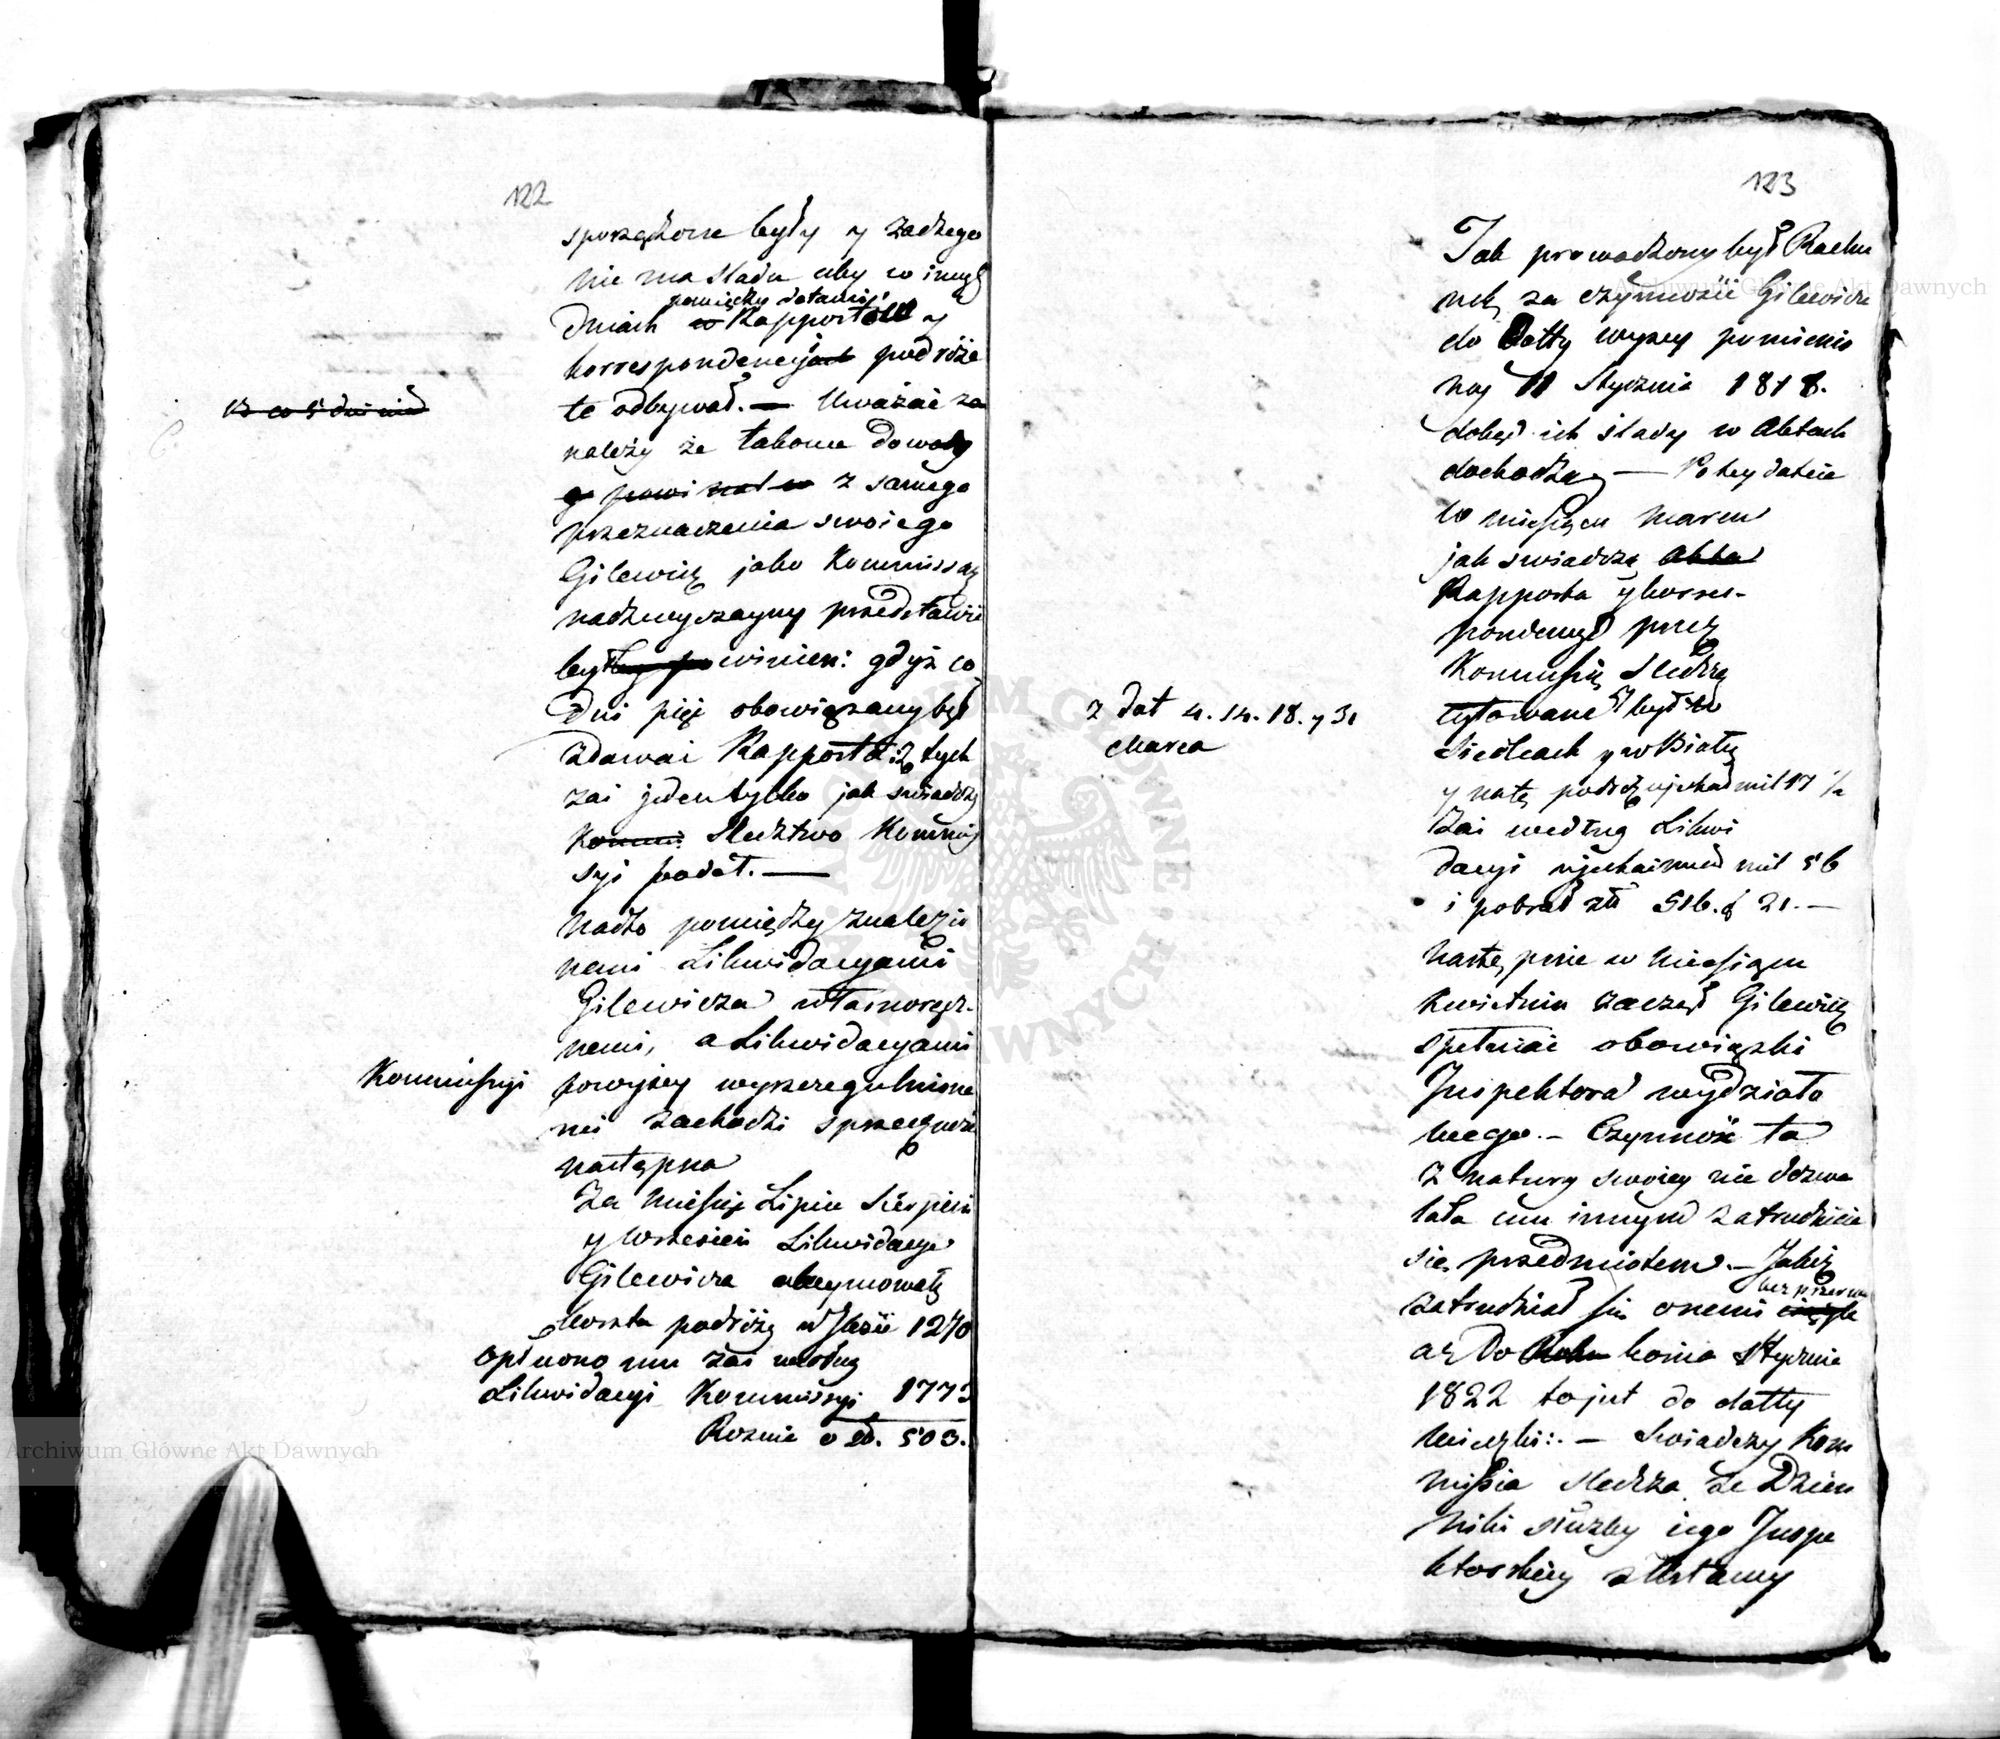 122
sporządzone były y żadnego
nie ma sladu aby w innych
pomiędzy datami
Dniach w Rapportów y
korrespondencyi podróże
te odbywał. — Uważać za
12 co 5 dni
należy że takowe dowody
powinat w z samego
przeznaczenia swoiego
Gilewicz jako Kommissarz
nadzwyczayny przedstawić
był powinien: gdyż co
Dni pięć obowiązany był
zdawać Rapporta: z tych
zaś jeden tylko jak swiadczy
Kommi Sledztwo Kommis
syi podał. —
Nadto pomiędzy znalezio
nemi Likwidacyami
Gilewicza własnoręcz-
nemi, a Likwidacyami
Kommissyi
powyżey wyszczegulnione
mi zachodzi sprzeczność
następna
Za Miesiąc Lipiec Sierpień
y Wrzesień Likwidacye
Gilewicza obeymowały
koszta podróży w Ilości 1270
opłacono mu zaś według
Likwidacyi Kommissyi 1773
Roznia o zł. 503.
123
Jak prowadzony był Rachu
nek za czynności Gilewicza
do Datty wyżey pomienio
ney 11 Stycznia 1818.
dotąd ich slady w Aktach
dochodzą — Po tey dacie
w miesiącu Marcu
jak swiadczą Akta
Rapporta y korres-
pondencye przez
Kommissią Sledczą
z dat 4. 14. 18. y 31
Marca
cytowane był w
Siedlcach y w Białey
y na tę podróż ujechał mil 17 1/2
Zaś według Likwi
dacyi ujechać miał mil 56
i pobrał złł 516. g 21. —
Następnie w Miesiącu
Kwietniu zaczął Gilewicz
spełniać obowiązki
Inspektora wydziało
wego. — Czynność ta
z natury swoiey nie dozwa
lała mu innym zatrudnić
się przedmiotem. — Jakoż
bez przerwy
zatrudniał się onemi ciągle
aż do końca Stycznia
1822 to jest do datty
ucieczki: — Swiadczy Kom
missia Sledcza że Dzien
niki służby iego Inspe
ktorskiey